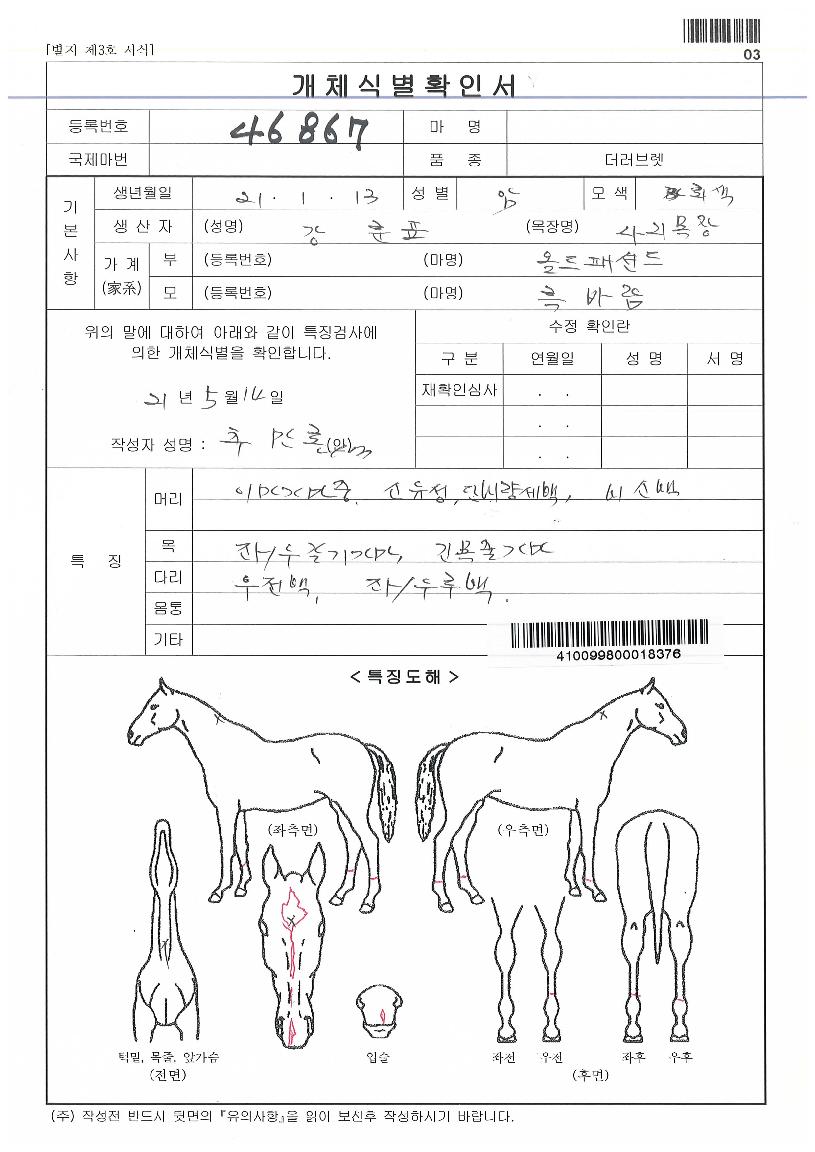 03
[별지 제3호 서식]
개체식별확인서
등록번호 46867 마 명
국제마번 품 종 더러브렛
기본사항
생년월일 21. 1. 13 성별 암 모색 회색
생산자 (성명) 강 훈표 (목장명) 사리목장
가계(家系) 부 (등록번호) (마명) 올드패션드
모 (등록번호) (마명) 흑 바람
위의 말에 대하여 아래와 같이 특징검사에
의한 개체식별을 확인합니다.
21년 5월 14일
작성자 성명 : 추 (인)
수정 확인란
구 분 연월일 성 명 서 명
재확인심사 . .
. .
. .
특 징
머리 유성, 비 소백
목 좌/우 줄기, 긴목줄기
다리 우전백, 좌/우후백.
몸통
기타
410099800018376
< 특징도해 >
(좌측면) (우측면)
턱밑, 목줄, 앞가슴 입술 좌전 우전 좌후 우후
(전면) (후면)
(주) 작성전 반드시 뒷면의 『유의사항』을 읽어 보신후 작성하시기 바랍니다.